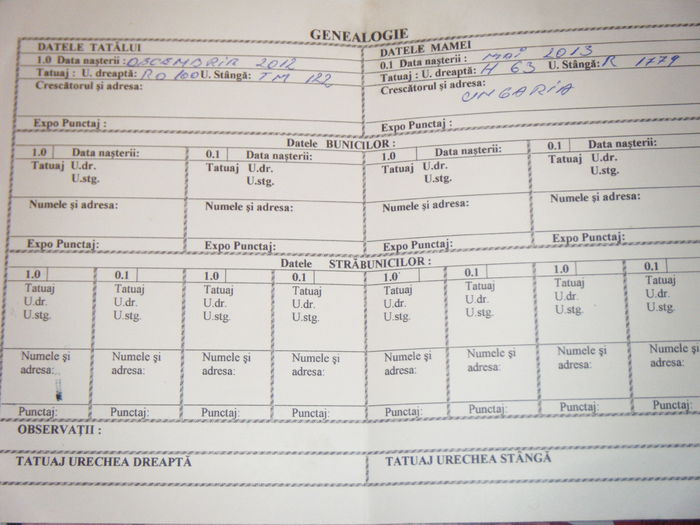 GENEALOGIE
DATELE TATĂLUI
1.0 Data nașterii: DECEMBRIE 2012
Tatuaj : U. dreaptă: RO 100 U. Stângă: TM 122
Crescătorul și adresa:
Expo Punctaj :
DATELE MAMEI
0.1 Data nașterii : MAI 2013
Tatuaj : U. dreaptă: H 63 U. Stângă: R 1779
Crescătorul și adresa:
UNGARIA
Expo Punctaj :
Datele BUNICILOR :
1.0 Data nașterii: 0.1 Data nașterii: 1.0 Data nașterii: 0.1 Data nașterii:
Tatuaj U.dr. Tatuaj U.dr. Tatuaj U.dr. Tatuaj U.dr.
U.stg. U.stg. U.stg. U.stg.
Numele și adresa: Numele și adresa: Numele și adresa: Numele și adresa:
Expo Punctaj: Expo Punctaj: Expo Punctaj: Expo Punctaj:
Datele STRĂBUNICILOR :
1.0 0.1 1.0 0.1 1.0 0.1 1.0 0.1
Tatuaj Tatuaj Tatuaj Tatuaj Tatuaj Tatuaj Tatuaj Tatuaj
U.dr. U.dr. U.dr. U.dr. U.dr. U.dr. U.dr. U.dr.
U.stg. U.stg. U.stg. U.stg. U.stg. U.stg. U.stg. U.stg.
Numele și Numele și Numele și Numele și Numele și Numele și Numele și Numele și
adresa: adresa: adresa: adresa: adresa: adresa: adresa: adresa:
Punctaj: Punctaj: Punctaj: Punctaj: Punctaj: Punctaj: Punctaj: Punctaj:
OBSERVAȚII :
TATUAJ URECHEA DREAPTĂ TATUAJ URECHEA STÂNGĂ